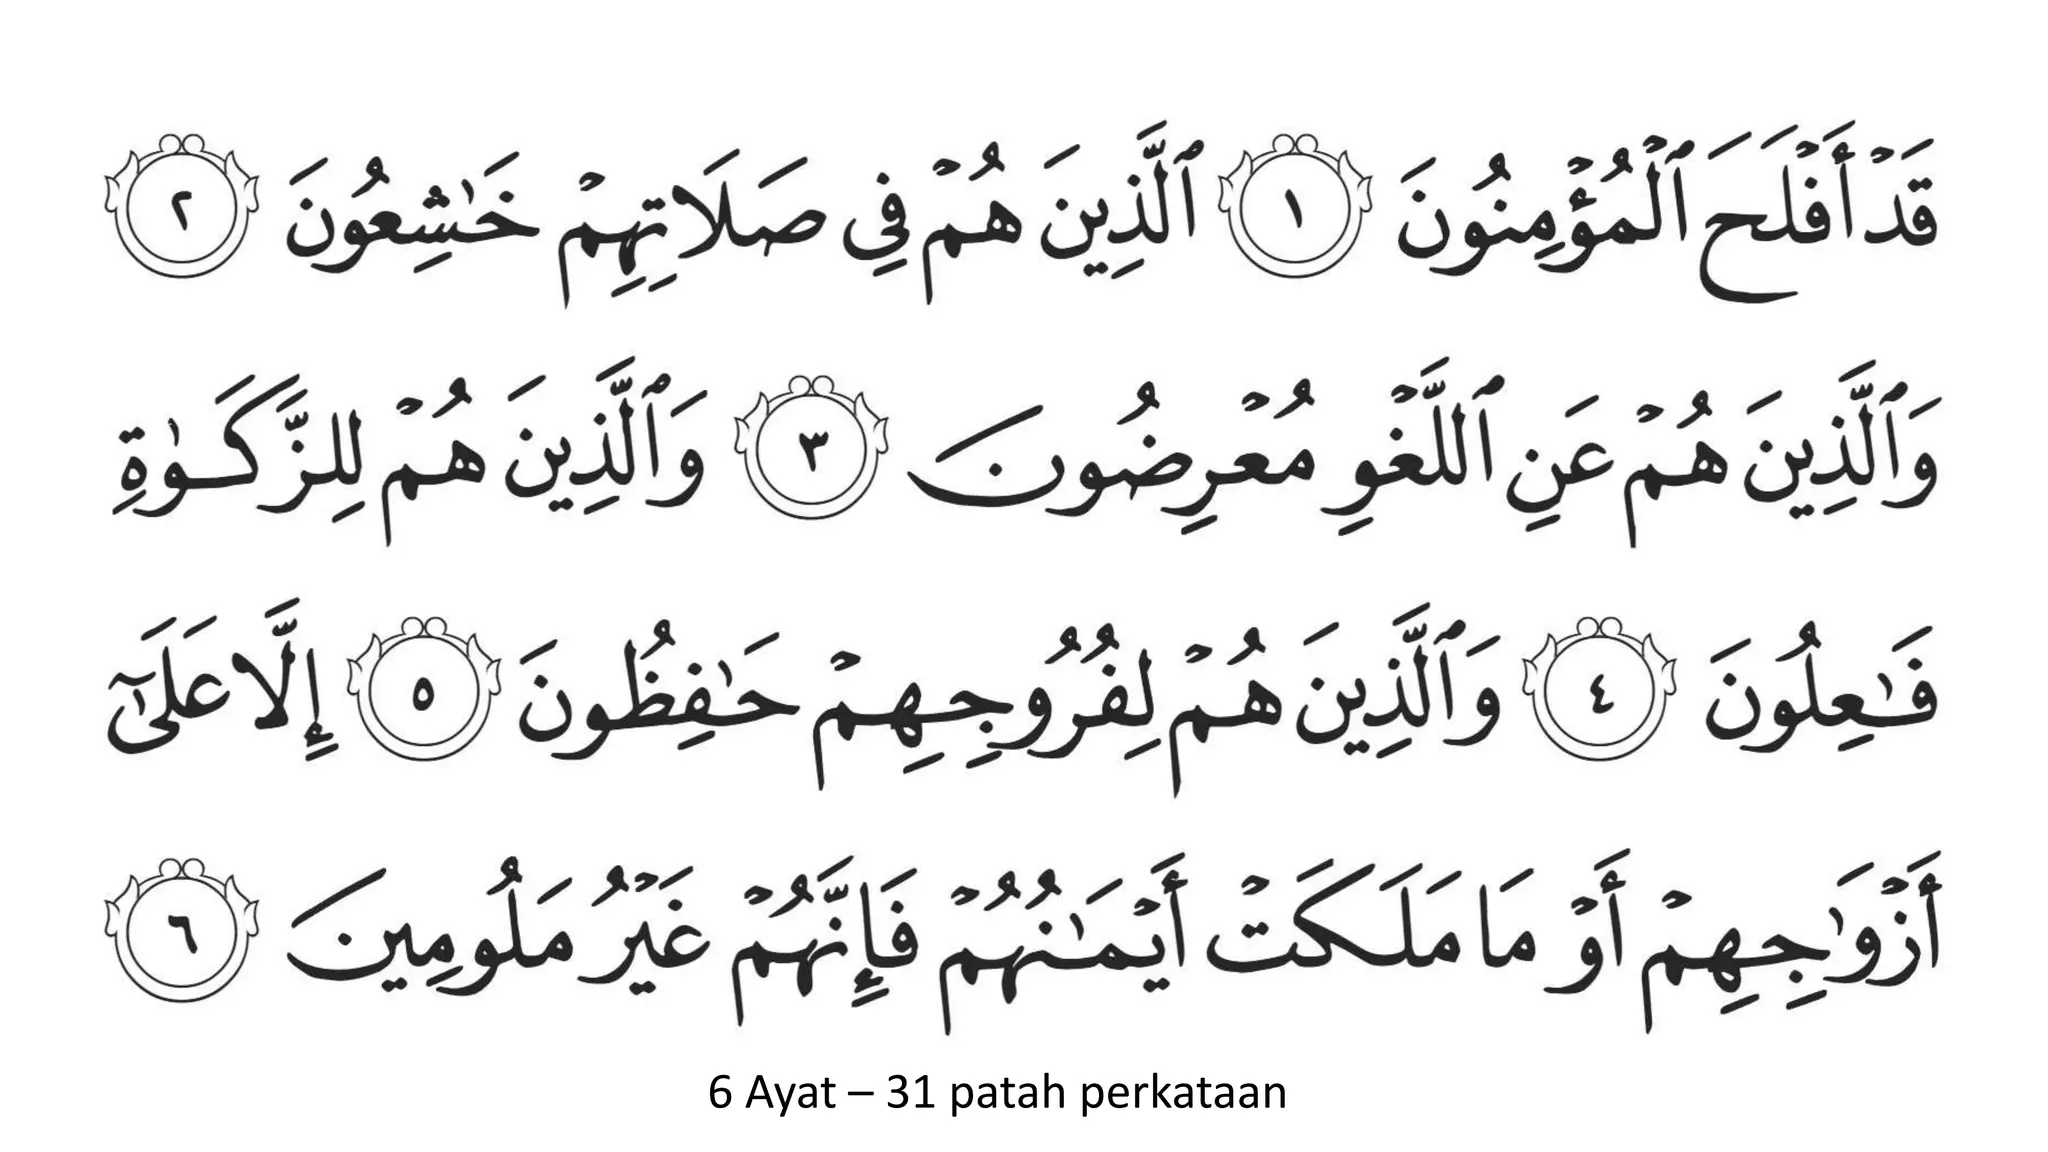 قَدۡ أَفۡلَحَ ٱلۡمُؤۡمِنُونَ ١ ٱلَّذِينَ هُمۡ فِي صَلَاتِهِمۡ خَٰشِعُونَ ٢
وَٱلَّذِينَ هُمۡ عَنِ ٱللَّغۡوِ مُعۡرِضُونَ ٣ وَٱلَّذِينَ هُمۡ لِلزَّكَوٰةِ
فَٰعِلُونَ ٤ وَٱلَّذِينَ هُمۡ لِفُرُوجِهِمۡ حَٰفِظُونَ ٥ إِلَّا عَلَىٰٓ
أَزۡوَٰجِهِمۡ أَوۡ مَا مَلَكَتۡ أَيۡمَٰنُهُمۡ فَإِنَّهُمۡ غَيۡرُ مَلُومِينَ ٦
6 Ayat – 31 patah perkataan